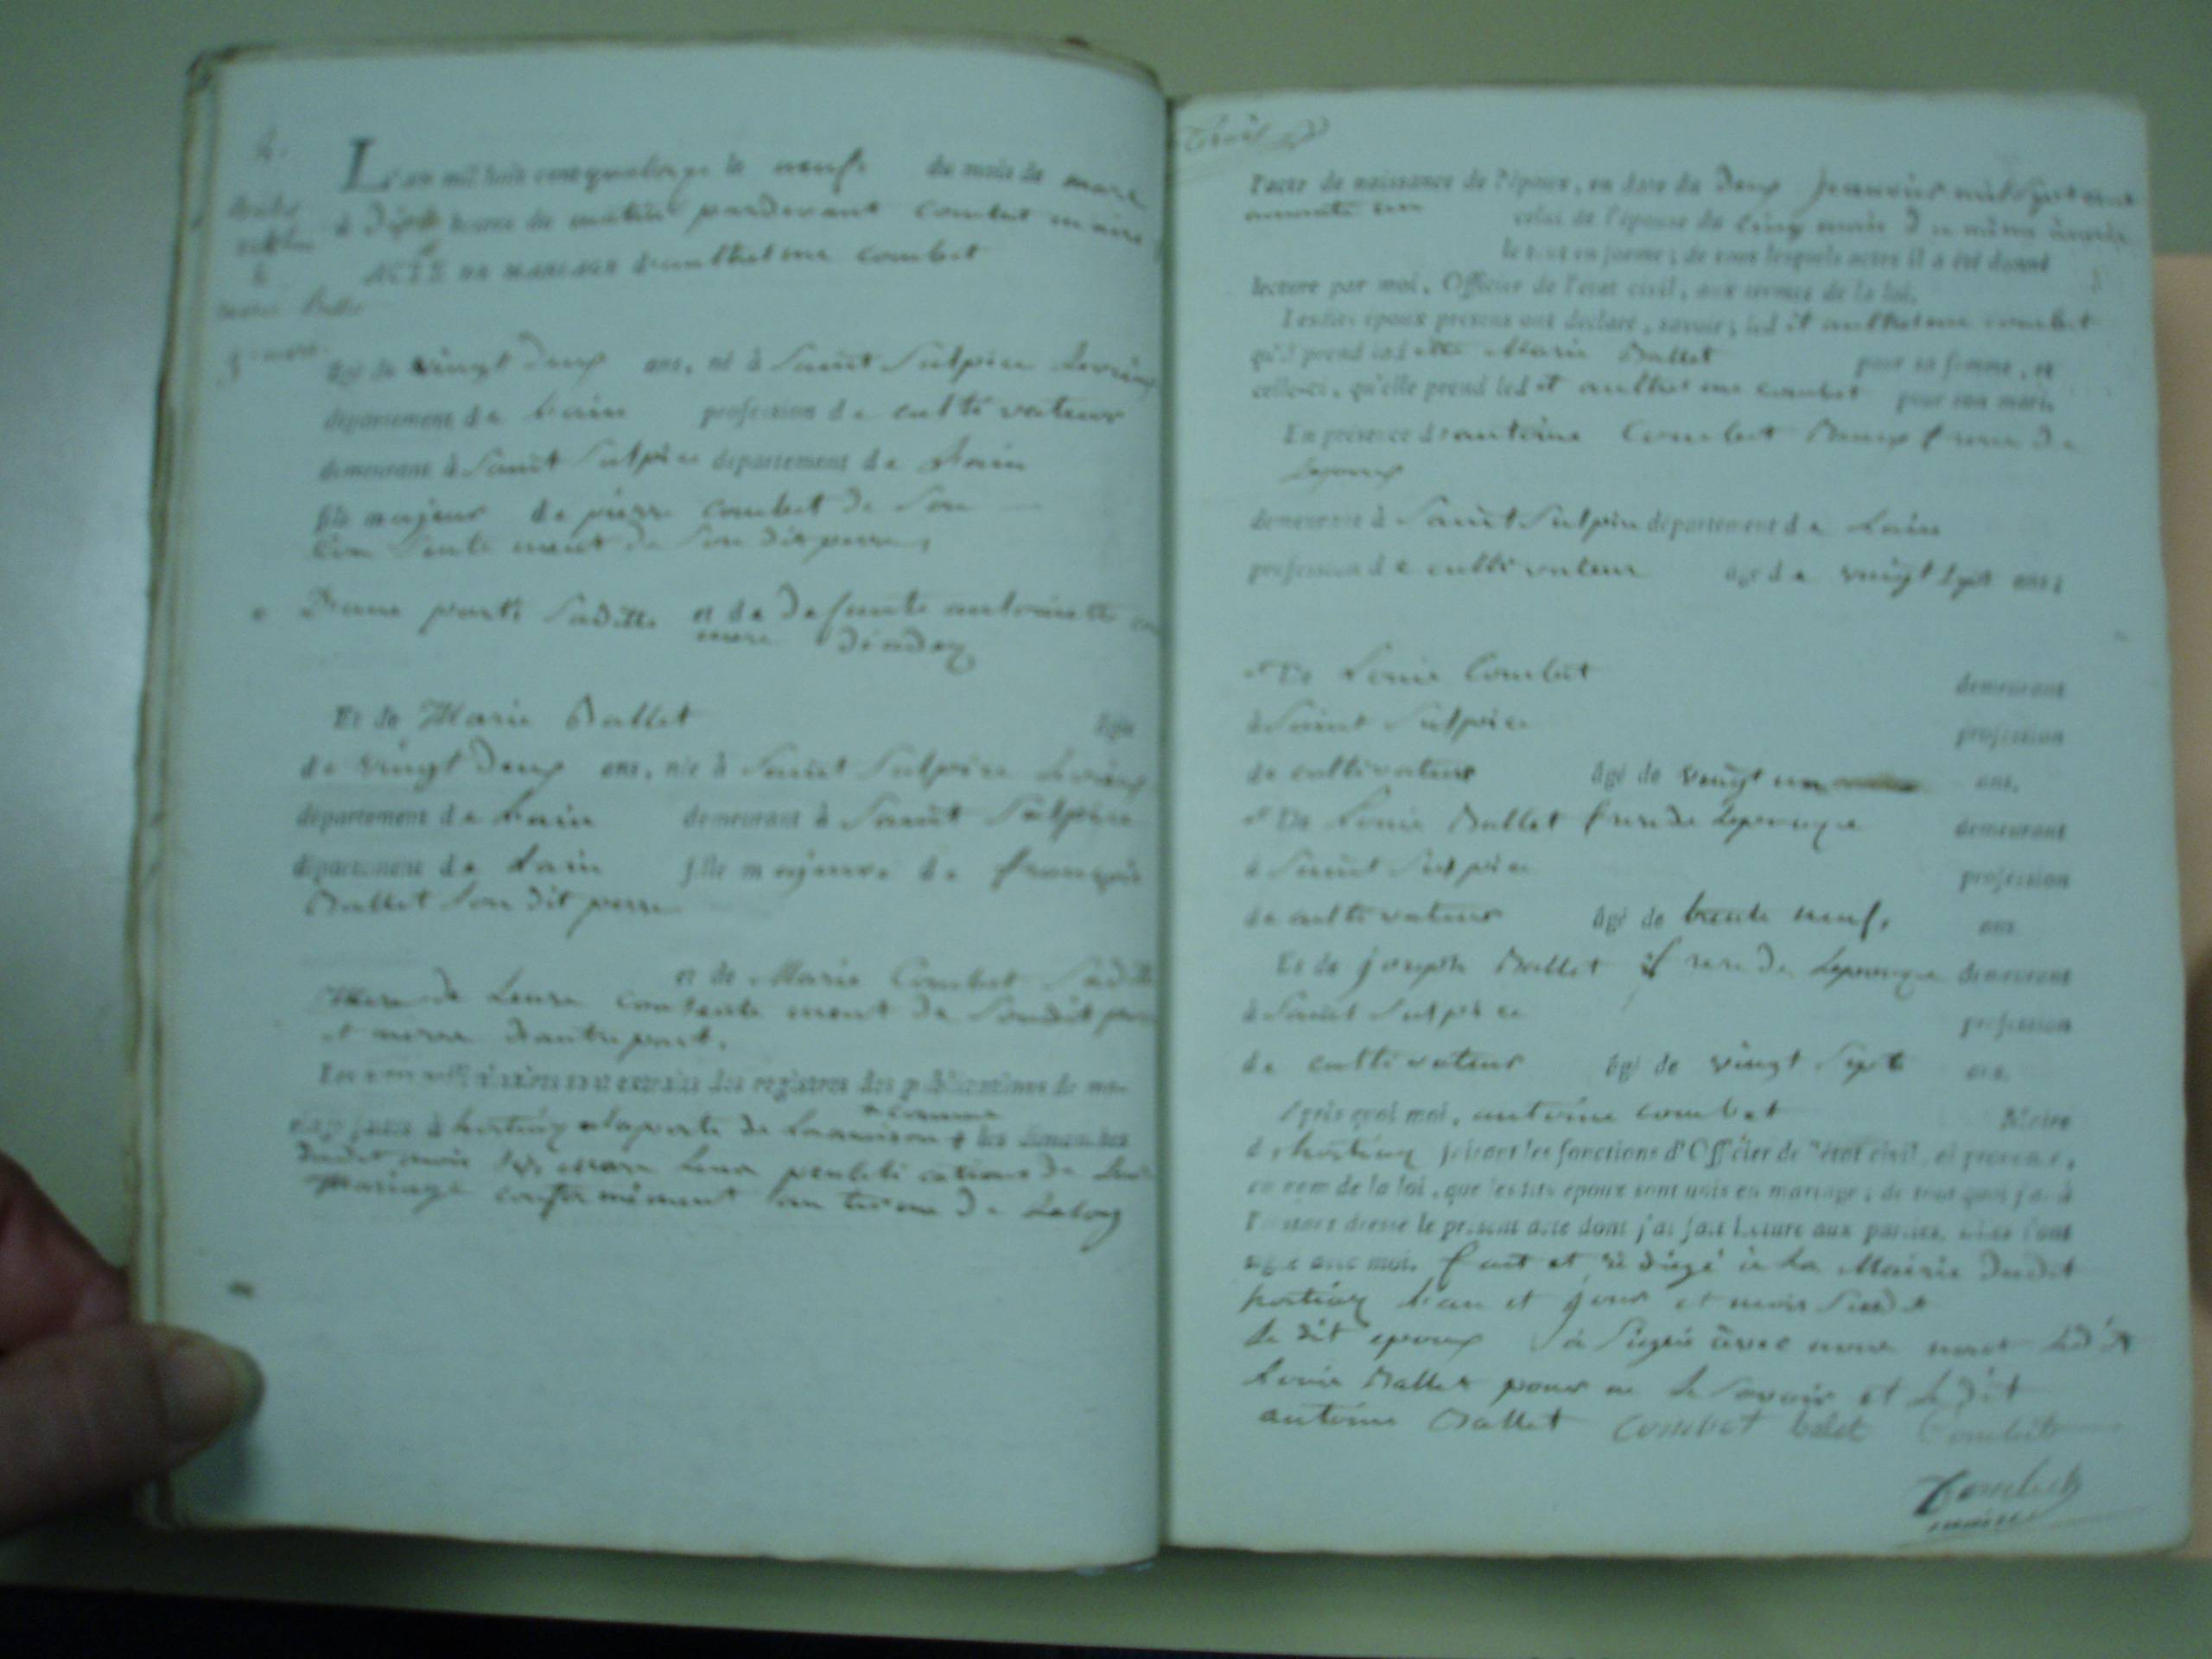 4.
L'an mil huit cent quatorze le neuf du mois de mars
à heures du matin pardevant combet maire
ACTE DE MARIAGE d'anthelme combet
Agé de vingt deux ans, né à Saint Sulpice Levieux
département de Lain profession de cultivateur
demeurant à Saint Sulpice département de Lain
fils majeur de pierre combet de Son
Consentement de Son dit perre,
D'une parte Saditte et de defunte antoinette
mere
Et de Marie Ballet âgée
de vingt deux ans, née à Saint Sulpice Levieux
département de Lain demeurant à Saint Sulpice
département de Lain fille majeure de françois
Ballet Son dit perre
et de Marie Combet Saditte
Mere de Leure consentement de Sondit perre
et merre d'autre part.
extraits des registres des publications de ma-
riage faites à la porte de la maison commune les dimanches
dudit mois mars Leur publications de
Mariage conformément au terme de Laloy
l'acte de naissance de l'époux, en date du deux janvier mil sept cent
celui de l'épouse du cinq mars d
le tout en forme ; de tous lesquels actes il a été donné
lecture par moi, Officier de l'état civil, aux termes de la loi.
Lesdits époux présens ont déclaré, savoir ; ledit anthelme combet
qu'il prend laditte Marie Ballet pour sa femme, et
celle-ci, qu'elle prend ledit anthelme combet pour son mari.
En présence d'antoine Combet frere de
Lepoux
demeurant à Saint Sulpice département de Lain
profession de cultivateur âgé de vingt Sept ans ;
De Louis Combet demeurant
à Saint Sulpice profession
de cultivateur âgé de vingt un ans.
De Louis Ballet frere de Lepouze demeurant
à Saint Sulpice profession
de cultivateur âgé de trente neuf, ans
Et de joseph Ballet frere de Lepouze demeurant
à Saint Sulpice profession
de cultivateur âgé de vingt Sept ans.
Après quoi moi, antoine combet Maire
faisant les fonctions d'Officier de l'état civil, ai prononcé,
au nom de la loi, que lesdits époux sont unis en mariage ; de tout quoi j'ai à
l'instant dressé le présent acte dont j'ai fait lecture aux parties,
signé avec moi. fait et rédigé à La Mairie dudit
L'an et jour et mois Susdit
Le dit epoux à Signé avec nous
Louis Ballet pour ne Le Savoir et Le dit
antoine Ballet combet balet Combet
Combet
maire